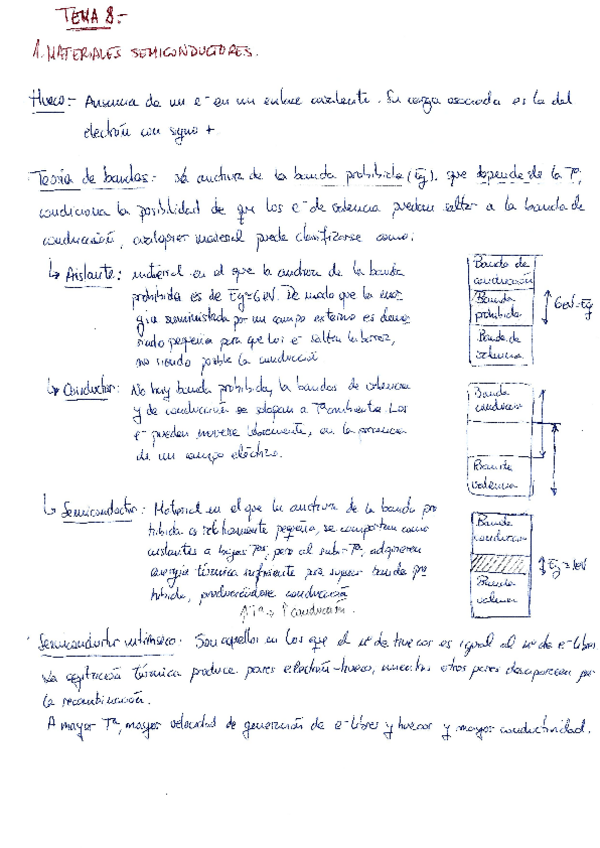 TEMA 8.-
1. MATERIALES SEMICONDUCTORES.
Hueco:- Ausencia de un e- en un enlace covalente. Su carga asociada es la del
electrón con signo +
Teoría de bandas:- La anchura de la banda prohibida (Eg), que depende de la Tª,
condiciona la posibilidad de que los e- de valencia puedan saltar a la banda de
conducción, cualquier material puede clasificarse como:
↳ Aislante: material en el que la anchura de la banda
prohibida es de Eg=6eV. De modo que la ener
gía suministrada por un campo externo es dema
siado pequeña para que los e- salten la barrera,
no siendo posible la conducción
Banda de
conducción
Banda
prohibida
6eV=Eg
Banda de
valencia
↳ Conductor: No hay banda prohibida, la bandas de valencia
y de conducción se solapan a Tª ambiente. Los
e- pueden moverse libremente, en la presencia
de un campo eléctrico.
Banda
conducción
Banda
valencia
↳ Semiconductor: Material en el que la anchura de la banda pro
hibida es relativamente pequeña, se comportan como
aislantes a bajas Tªs, pero al subir Tª, adquieren
energía térmica suficiente para superar banda pro
hibida, produciéndose conducción
↑Tª → ↑ conducción.
Banda
conducción
Eg=1eV
Banda
valencia
Semiconductor intrínseco: Son aquellos en los que el nº de huecos es igual al nº de e- libres
La agitación térmica produce pares electrón-hueco, mientras otros pares desaparecen por
la recombinación.
A mayor Tª, mayor velocidad de generación de e- libres y huecos y mayor conductividad.